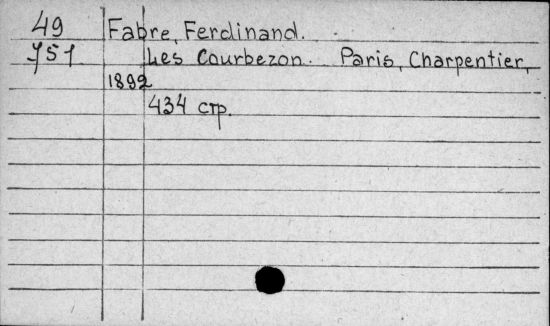 49 Fabre, Ferdinand.
751 Les Courbezon. Paris, Charpentier,
1892
434 стр.